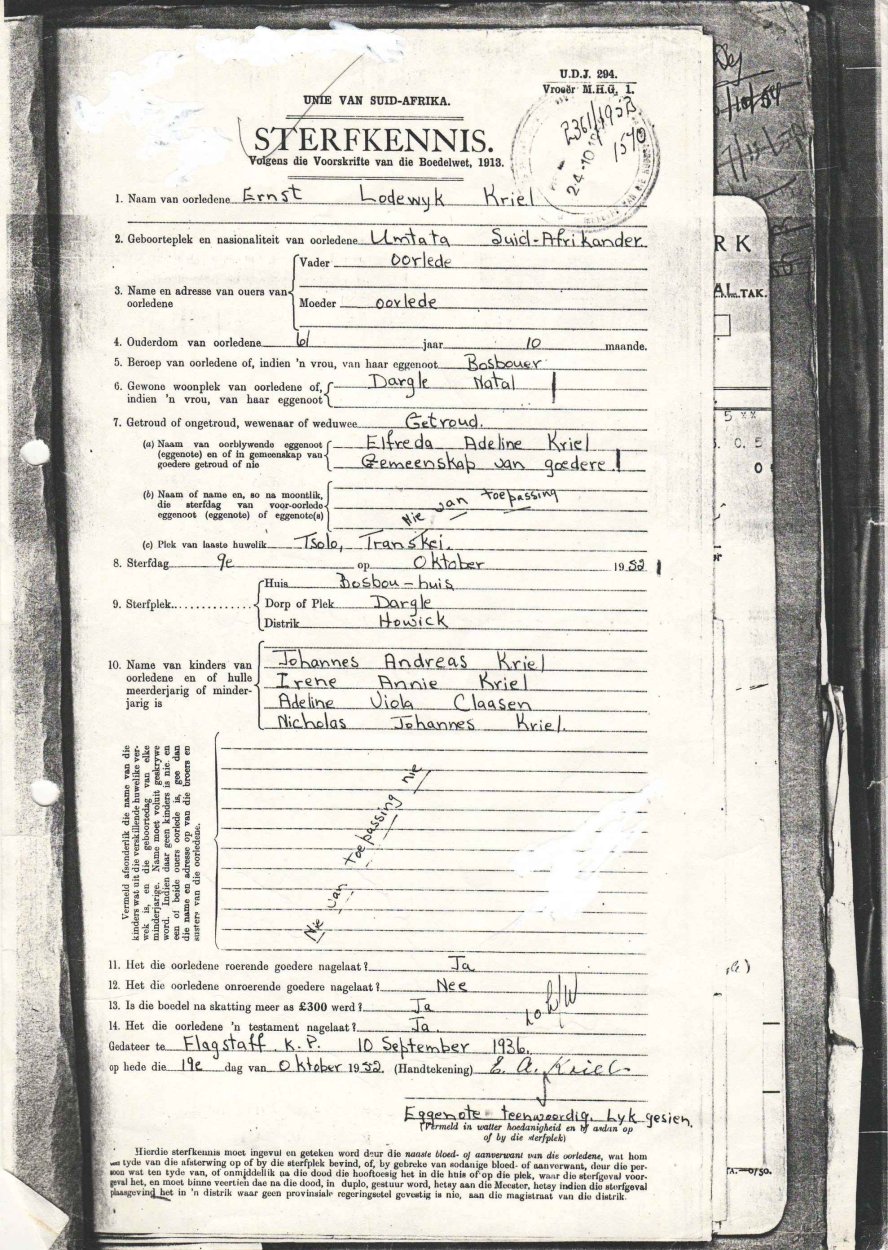 U.D.J. 294.
Vroeër M.H.G. 1.
UNIE VAN SUID-AFRIKA.
STERFKENNIS.
Volgens die Voorskrifte van die Boedelwet, 1913.
2361/1952
24.10
1. Naam van oorledene Ernst Lodewyk Kriel
2. Geboorteplek en nasionaliteit van oorledene Umtata Suid-Afrikander
3. Name en adresse van ouers van oorledene
Vader oorlede
Moeder oorlede
4. Ouderdom van oorledene 61 jaar 10 maande.
5. Beroep van oorledene of, indien 'n vrou, van haar eggenoot Bosbouer
6. Gewone woonplek van oorledene of, indien 'n vrou, van haar eggenoot Dargle Natal
7. Getroud of ongetroud, wewenaar of weduwee Getroud.
(a) Naam van oorblywende eggenoot (eggenote) en of in gemeenskap van goedere getroud of nie
Elfreda Adeline Kriel
Gemeenskap van goedere
(b) Naam of name en, so na moontlik, die sterfdag van voor-oorlede eggenoot (eggenote) of eggenote(s)
Nie van toepassing
(c) Plek van laaste huwelik Tsolo, Transkei.
8. Sterfdag 9e op Oktober 1952
9. Sterfplek
Huis Bosbou-huis
Dorp of Plek Dargle
Distrik Howick
10. Name van kinders van oorledene en of hulle meerderjarig of minderjarig is
Johannes Andreas Kriel
Irene Annie Kriel
Adeline Viola Claasen
Nicholas Johannes Kriel.
Vermeld afsonderlik die name van die
kinders wat uit die verskillende huwelike ver-
wek is, en die geboortedag van elke
minderjarige. Name moet voluit geskrywe
word. Indien daar geen kinders is nie, en
een of beide ouers oorlede is, gee dan
die name en adresse op van die broers en
susters van die oorledene.
Nie van toepassing nie
11. Het die oorledene roerende goedere nagelaat? Ja
12. Het die oorledene onroerende goedere nagelaat? Nee
13. Is die boedel na skatting meer as £300 werd? Ja
14. Het die oorledene 'n testament nagelaat? Ja.
Gedateer te Flagstaff K.P. 10 September 1936.
op hede die 19e dag van Oktober 1952. (Handtekening) E. A. Kriel.
Eggenote teenwoordig. Lyk gesien.
(Vermeld in watter hoedanigheid en of asdan op
of by die sterfplek)
Hierdie sterfkennis moet ingevul en geteken word deur die naaste bloed- of aanverwant van die oorledene, wat hom
ten tyde van die afsterwing op of by die sterfplek bevind, of, by gebreke van sodanige bloed- of aanverwant, deur die per-
soon wat ten tyde van, of onmiddellik na die dood die hooftoesig het in die huis of op die plek, waar die sterfgeval voor-
geval het, en moet binne veertien dae na die dood, in duplo, gestuur word, hetsy aan die Meester, hetsy indien die sterfgeval
plaasgevind het in 'n distrik waar geen provinsiale regeringsetel gevestig is nie, aan die magistraat van die distrik.
RK
AL TAK.